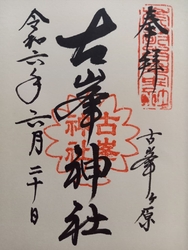 奉拝
古峯ヶ原
古峯神社
古峯神社
令和六年六月二十日